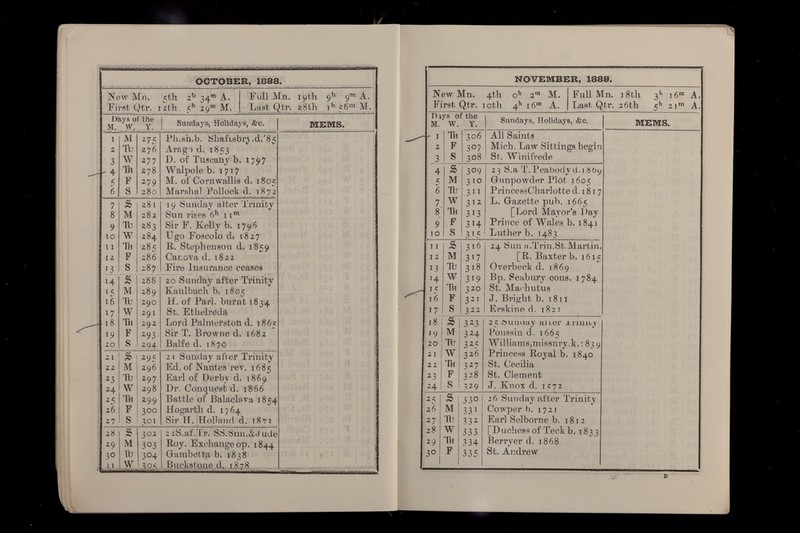 OCTOBER, 1888.
New Mn. 5th 2h 34m A. Full Mn. 19th 9h 9m A.
First Qtr. 12th 5h 29m M. Last Qtr. 28th 1h 56m M.
Days of the Sundays, Holidays, &c. MEMS.
M. W. Y.
1 M 275 Ph.sh.b. Shaftsbry.d.'85
2 Tu 276 Arago d. 1853
3 W 277 D. of Tuscany b. 1797
4 Th 278 Walpole b. 1717
5 F 279 M. of Cornwallis d. 1805
6 S 280 Marshal Pollock d. 1872
7 S 281 19 Sunday after Trinity
8 M 282 Sun rises 6h 11m
9 Tu 283 Sir F. Kelly b. 1796
10 W 284 Ugo Foscolo d. 1827
11 Th 285 R. Stephenson d. 1859
12 F 286 Canova d. 1822
13 S 287 Fire Insurance ceases
14 S 288 20 Sunday after Trinity
15 M 289 Kaulbach b. 1805
16 Tu 290 H. of Parl. burnt 1834
17 W 291 St. Etheldreda
18 Th 292 Lord Palmerston d. 1865
19 F 293 Sir T. Browne d. 1682
20 S 294 Balfe d. 1870
21 S 295 21 Sunday after Trinity
22 M 296 Ed. of Nantes rev. 1685
23 Tu 297 Earl of Derby d. 1869
24 W 298 Dr. Conquest d. 1866
25 Th 299 Battle of Balaclava 1854
26 F 300 Hogarth d. 1764
27 S 301 Sir H. Holland d. 1873
28 S 302 22S.af.Tr. SS.Sim.&Jude
29 M 303 Roy. Exchange op. 1844
30 Tu 304 Gambetta b. 1838
31 W 305 Buckstone d. 1878
NOVEMBER, 1888.
New Mn. 4th 0h 2m M. Full Mn. 18th 3h 16m A.
First Qtr. 10th 4h 16m A. Last Qtr. 26th 5h 21m A.
Days of the Sundays, Holidays, &c. MEMS.
M. W. Y.
1 Th 306 All Saints
2 F 307 Mich. Law Sittings begin
3 S 308 St. Winifrede
4 S 309 23 S.a T. Peabody d. 1869
5 M 310 Gunpowder Plot 1605
6 Tu 311 Princess Charlotte d. 1817
7 W 312 L. Gazette pub. 1665
8 Th 313 [Lord Mayor's Day
9 F 314 Prince of Wales b. 1841
10 S 315 Luther b. 1483
11 S 316 24 Sun a.Trin.St.Martin.
12 M 317 [R. Baxter b. 1615
13 Tu 318 Overbeck d. 1869
14 W 319 Bp. Seabury cons. 1784
15 Th 320 St. Machutus
16 F 321 J. Bright b. 1811
17 S 322 Erskine d. 1823
18 S 323 25 Sunday after Trinity
19 M 324 Poussin d. 1665
20 Tu 325 Williams,missnry.k.1839
21 W 326 Princess Royal b. 1840
22 Th 327 St. Cecilia
23 F 328 St. Clement
24 S 329 J. Knox d. 1572
25 S 330 26 Sunday after Trinity
26 M 331 Cowper b. 1721
27 Tu 332 Earl Selborne b. 1812
28 W 333 [Duchess of Teck b. 1833
29 Th 334 Berryer d. 1868
30 F 335 St. Andrew
B